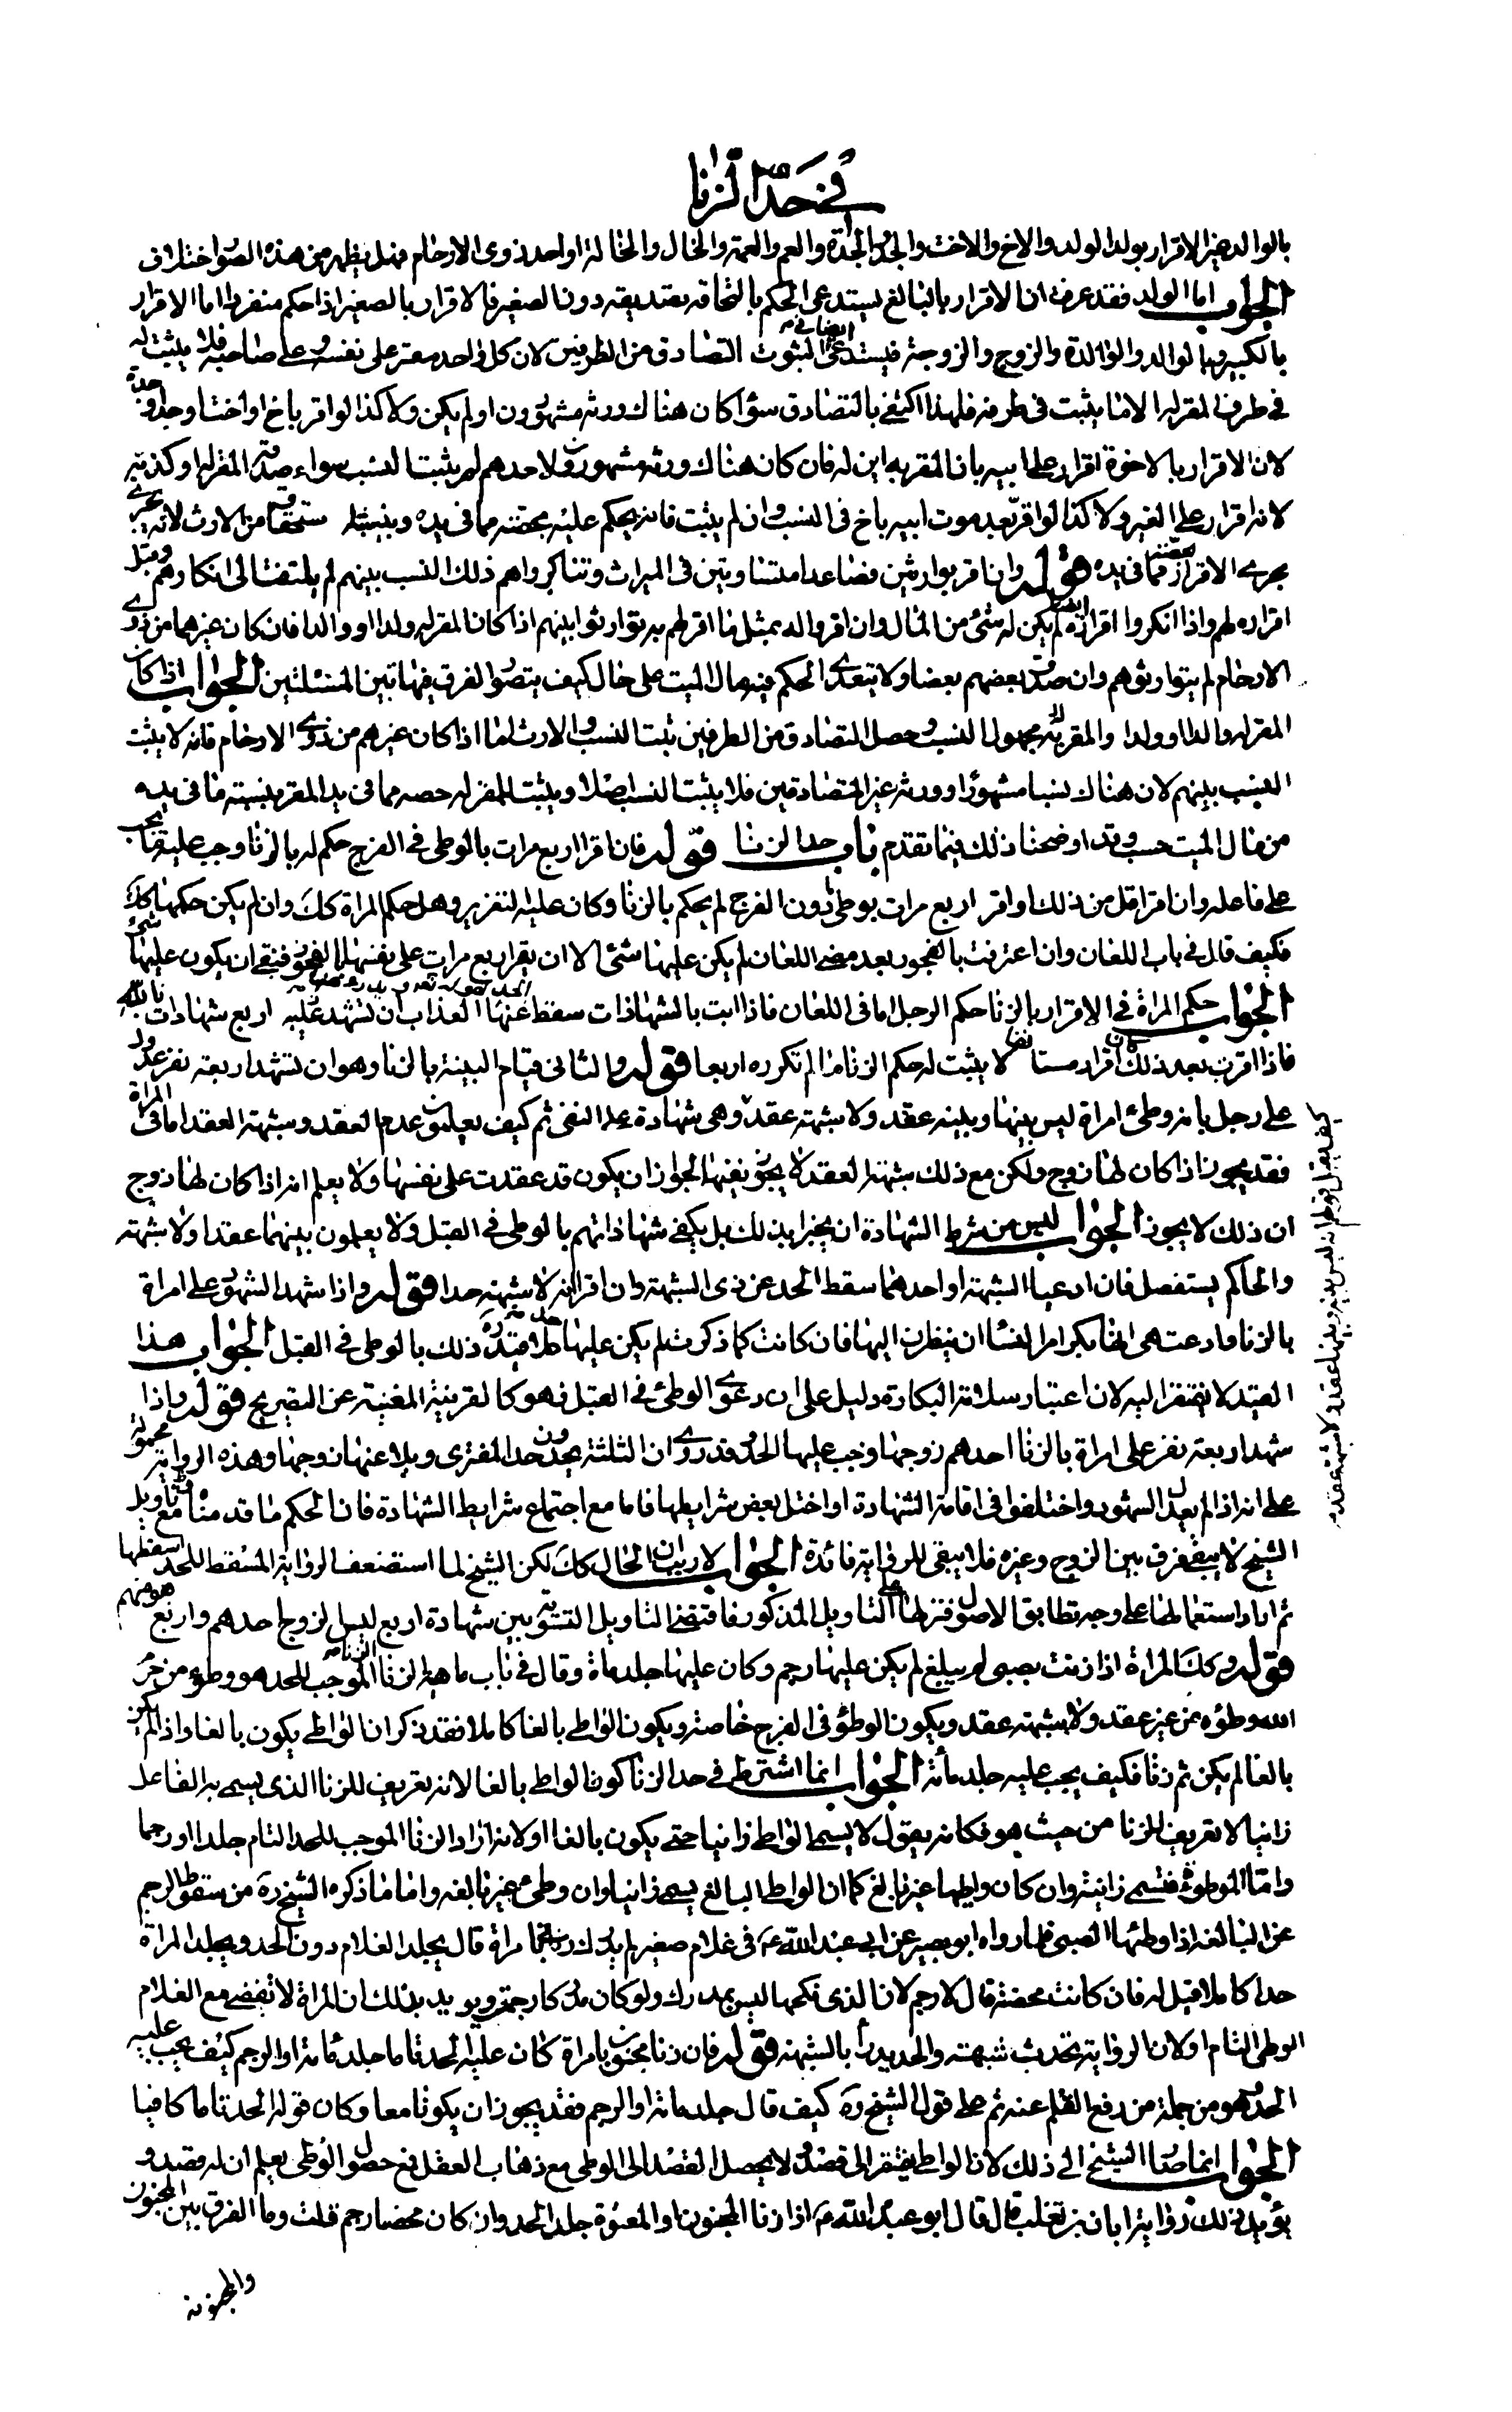 في حد الزنا
بالوالد غير الاقرار بولد الولد والاخ والاخت والجد والجدة والعم والعمة والخال والخالة او احد ذوى الارحام فهل يظهر من هذه الصور اختلاف
الجواب اما الولد فقد عرفت ان الاقرار بالبالغ يستدعى الحكم بالتحاقه بتصديقه دون الصغير فالاقرار بالصغير اذا حكم منفردا اما الاقرار
بالكبير وبالوالد والوالدة والزوج والزوجة فيستدعى الثبوت ايضا التصادق من الطرفين لان كل واحد مقر على نفسه وعلى صاحبه فلا يثبت له
في طرف المقر له الا ما يثبت في طرفه فلهذا اكتفى بالتصادق سواء كان هناك ورثة مشهورون او لم يكن ولا كذا لو اقر باخ او اخت او جد او جدة
لان الاقرار بالاخوة اقرار على ابيه بان المقر به ابن له فان كان هناك ورثة مشهورون ولاحدهم لم يثبت النسب سواء صدقه المقر له او كذبه
لانه اقرار على الغير ولا كذا لو اقر بعد موت ابيه باخ في النسب وان لم يثبت فانه يحكم عليه بحصته مما في يده وبنسبة مستحقه من الارث لانه يجرى
مجرى الاقرار بحصته مما في يده قوله وان اقر بوارثين فصاعدا متساويين في الميراث وتناكروا هم ذلك النسب بينهم لم يلتفت الى انكارهم وقبل
اقراره لهم واذا انكروا اقراره ايضا لم يكن له شئ من المال وان اقروا له بمثل ما اقر لهم به توارثوا بينهم اذا كان المقر له ولدا او والدا فان كان غيرهما من ذوى
الارحام لم يتوارثوا هم وان صدق بعضهم بعضا ولا يتعدى الحكم فيه مال الميت على حال كيف يتصور الفرق فيها بين المسئلتين الجواب اذا كان
المقر له والدا او ولدا والمقر به مجهول النسب وحصل التصادق من الطرفين ثبت النسب والارث اما اذا كان غيرهم من ذوى الارحام فانه لا يثبت
النسب بينهم لان هناك نسبا مشهورا وورثة غير المتصادقين فلا يثبت النسب اصلا ويثبت للمقر له حصة مما في يد المقر بنسبة ما في يده
من مال الميت حسب وقد اوضحنا ذلك فيما تقدم باب حد الزنا قوله فان اقر اربع مرات بالوطى في الفرج حكم له بالزنا وجب عليه ما يجب
على فاعله وان اقر اقل من ذلك او اقر اربع مرات بوطى دون الفرج لم يحكم بالزنا وكان عليه التعزير وهل حكم المراة كك وان لم يكن حكمها كك
فكيف قال في باب اللعان وان اعترفت بالفجور بعد مضى اللعان لم يكن عليها شئ الا ان يقر اربع مرات على نفسها بالفجور فينبغى ان يكون عليها شئ
الجواب حكم المراة في الاقرار بالزنا حكم الرجل اما في اللعان فاذا اتت بالشهادات سقط عنها العذاب ان تشهد عليه اربع شهادات بالله
فاذا اقرت بعد ذلك كان اقرار مستانفا لا يثبت له حكم الزنا ما لم تكرره اربعا قوله والثانى قيام البينة بالزنا وهو ان تشهد اربعة نفر عدول
على رجل بانه وطئ امراة ليس بينها وبينه عقد ولا شبهة عقد وهى شهادة على النفى ثم كيف يعلمون عدم العقد وشبهة العقد اما في المراة
فقد يجوز اذا كان لها زوج ولكن مع ذلك شبهة العقد لا يجوز نفيها لجواز ان يكون قد عقدت على نفسها ولا يعلم انه اذا كان لها زوج
ان ذلك لا يجوز الجواب ليس من شرط الشهادة ان يخبر بذلك بل يكفى شهاداتهم بالوطى في القبل ولا يعلمون بينهما عقدا ولا شبهة
والحاكم يستفصل فان ادعيا الشبهة او احدهما سقط الحد عن ذى الشبهة وان اقر انه لا شبهة حدا قوله واذا شهد الشهود على امراة
بالزنا وادعت هى انها بكر امر النساء ان ينظرن اليها فان كانت كما ذكرت لم يكن عليها حد ذلك بالوطى في القبل الجواب هذا
القيد لا يفتقر اليه لان اعتبار سلامة البكارة دليل على ان دعوى الوطئ في القبل فهو كالقرينة المغنية عن التصريح قوله واذا
شهد اربعة نفر على امراة بالزنا احدهم زوجها وجب عليها الحد وقد روى ان الثلثة يحدون حد المفترى ويلاعنها زوجها وهذه الرواية محمولة
على انه اذا لم يعدل الشهود واختلفوا في اقامة الشهادة او اختل بعض شرايطها فاما مع اجتماع شرايط الشهادة فان الحكم ما قدمناه ومع تاويل
الشيخ لا يبقى فرق بين الزوج وغيره فلا يبقى للرواية فائدة الجواب لا ريب ان الحال كك لكن الشيخ لما استضعف الرواية المسقط للحد اسقطها
ثم اراد استعمالها على وجه تطابق الاصول فنزلها على التاويل المذكور فاقتضى التاويل التسوية بين شهادة اربع ليس الزوج احدهم واربع هو منهم
قوله وكك المراة اذا زنت بصبى لم يبلغ لم يكن عليها رجم وكان عليها جلد ماة وقال في باب ماهية الزنا الموجب للحد هو وطء من حرم
الله وطؤه من غير عقد ولا شبهة عقد ويكون الوطؤ في الفرج خاصة ويكون الواطى بالغا كاملا فقد ذكر ان الواطى يكون بالغا واذا لم يكن
بالغا لم يكن ثم زنا فكيف يجب عليه جلد مأة الجواب انما اشترط في حد الزنا كون الواطى بالغا لانه تعريف للزنا الذى يسمى به الفاعل
زانيا لا تعريف الزنا من حيث هو فكانه يقول لا يسمى الواطى زانيا حتى يكون بالغا اولا نه اراد الزنا الموجب للحد التام جلدا او رجما
واما الموطوئة فتسمى زانية وان كان واطيها غير بالغ كما ان الواطى البالغ يسمى زانيا وان وطئ غير بالغة واما ما ذكره الشيخ ره من سقوط الرجم
عن البالغة اذا وطئها الصبى فلما رواه ابو بصير عن ابى عبد الله ع في غلام صغير لم يدرك زنى بامراة قال يجلد الغلام دون الحد ويجلد المراة
حدا كاملا قيل له فان كانت محصنة قال لا رجم لان الذى نكحها ليس بمدرك ولو كان مدركا رجمت ويريد بذلك ان المراة لا تفضى مع الغلام
الوطى التام اولان الرواية تحدث شبهة والحد يدرأ بالشبهة قوله فان زنا مجنون بامراة كان عليه الحد تاما جلد مائة او الرجم كيف يجب عليه
الحد وهو من جملة من رفع القلم عنه ثم على قول الشيخ ره كيف قال جلد مائة او الرجم فقد يجوز ان يكونا معا وكان قوله الحد تاما كافيا
الجواب انما صار الشيخ الى ذلك لان الواطى يفتقر الى قصد ولا يحصل القصد الى الوطى مع ذهاب العقل فمع حصول الوطى يعلم ان له قصد و
يؤيد ذلك رواية ابان بن تغلب قال قال ابو عبد الله ع اذا زنا المجنون او المعتوه جلد الحد وان كان محصنا رجم قلت وما الفرق بين المجنون
والمجنونة
كيف يقبل قولهم انه ليس بينه وبينها عقد ولا شبهة عقد